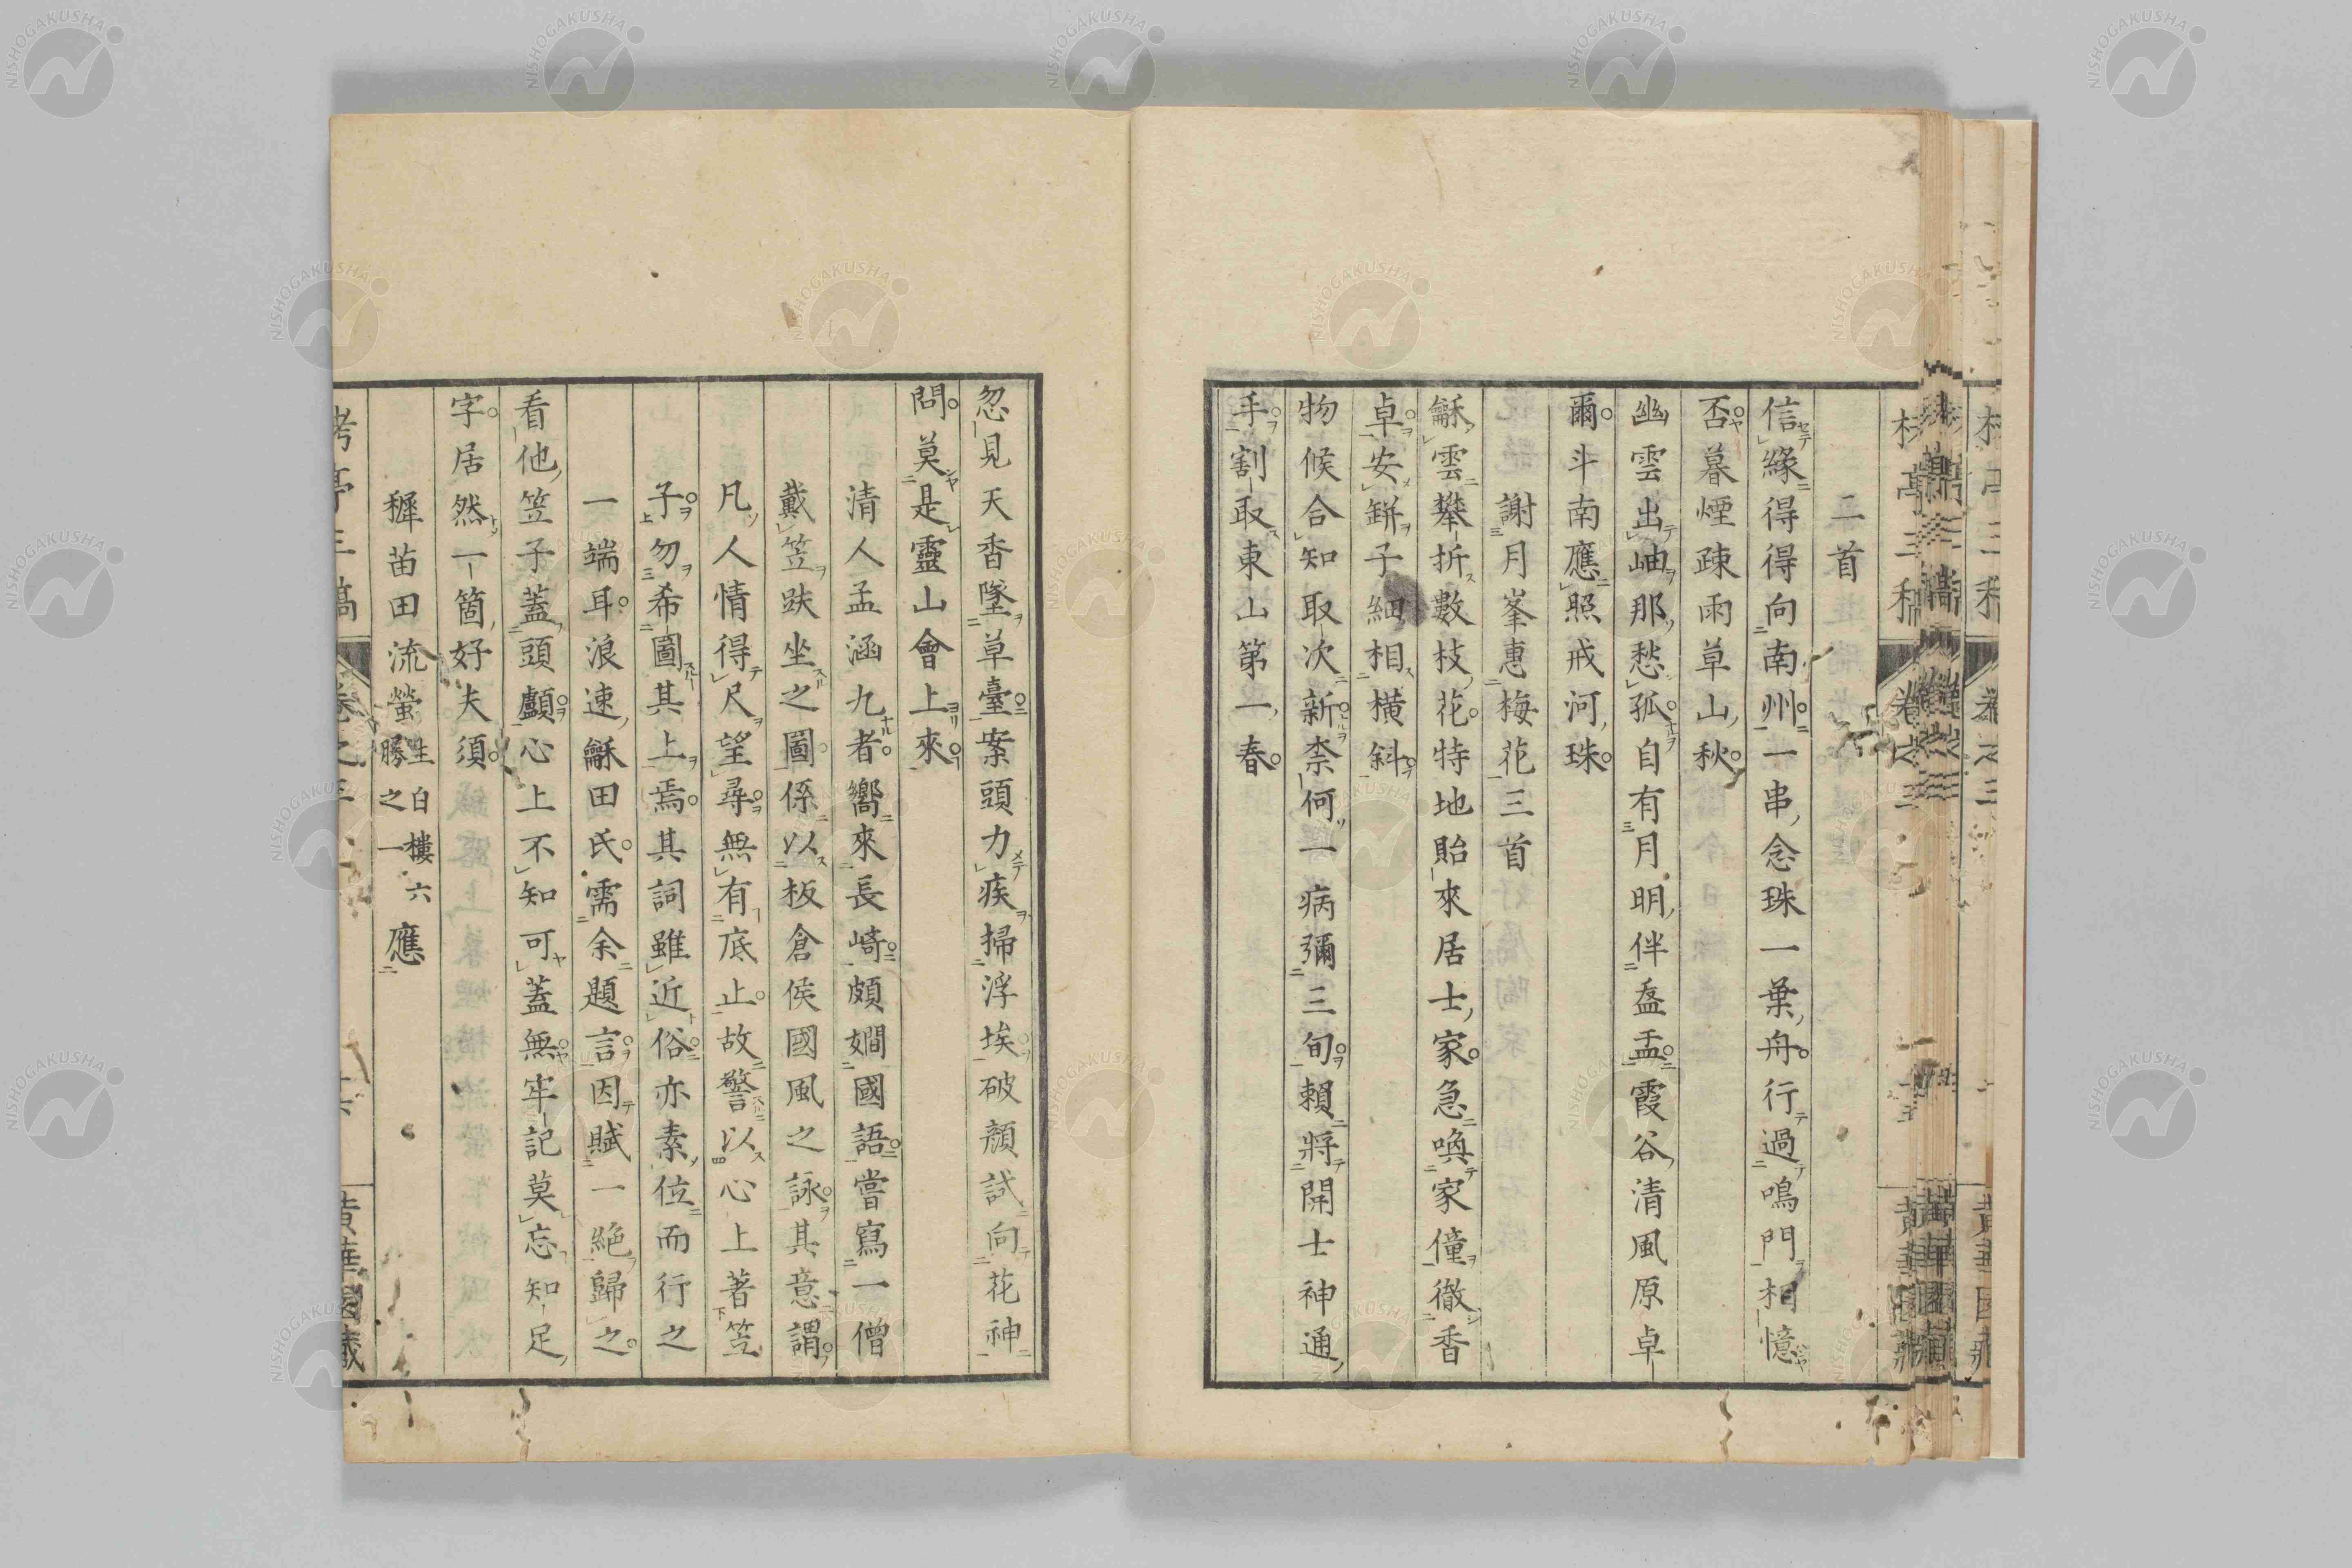 二首
信緣得得向南州一串念珠一葉舟行過鳴門相憶
否暮煙疎雨草山秋
幽雲出岫那愁孤自有月明伴盋盂霞谷清風原卓
爾斗南應照戒河珠
謝月峯惠梅花三首
龢雲攀折數枝花特地貽來居士家急喚家僮徹香
卓安缾子細相橫斜
物候合知取次新柰何一病彌三旬賴將開士神通
手割取東山第一春
忽見天香墜草臺案頭力疾掃浮埃破顏試向花神
問莫是靈山會上來
清人孟涵九者嚮來長崎頗嫺國語嘗寫一僧
戴笠趺坐之圖係以板倉侯國風之詠其意謂
凡人情得尺望尋無有底止故警以心上著笠
子勿希圖其上焉其詞雖近俗亦素位而行之
一端耳浪速龢田氏需余題言因賦一絕歸之
看他笠子蓋頭顱心上不知可蓋無牢記莫忘知足
字居然一箇好夫須
穉苗田流螢生白樓六勝之一應
卷之三
黃華園藏
NISHOGAKUSHA